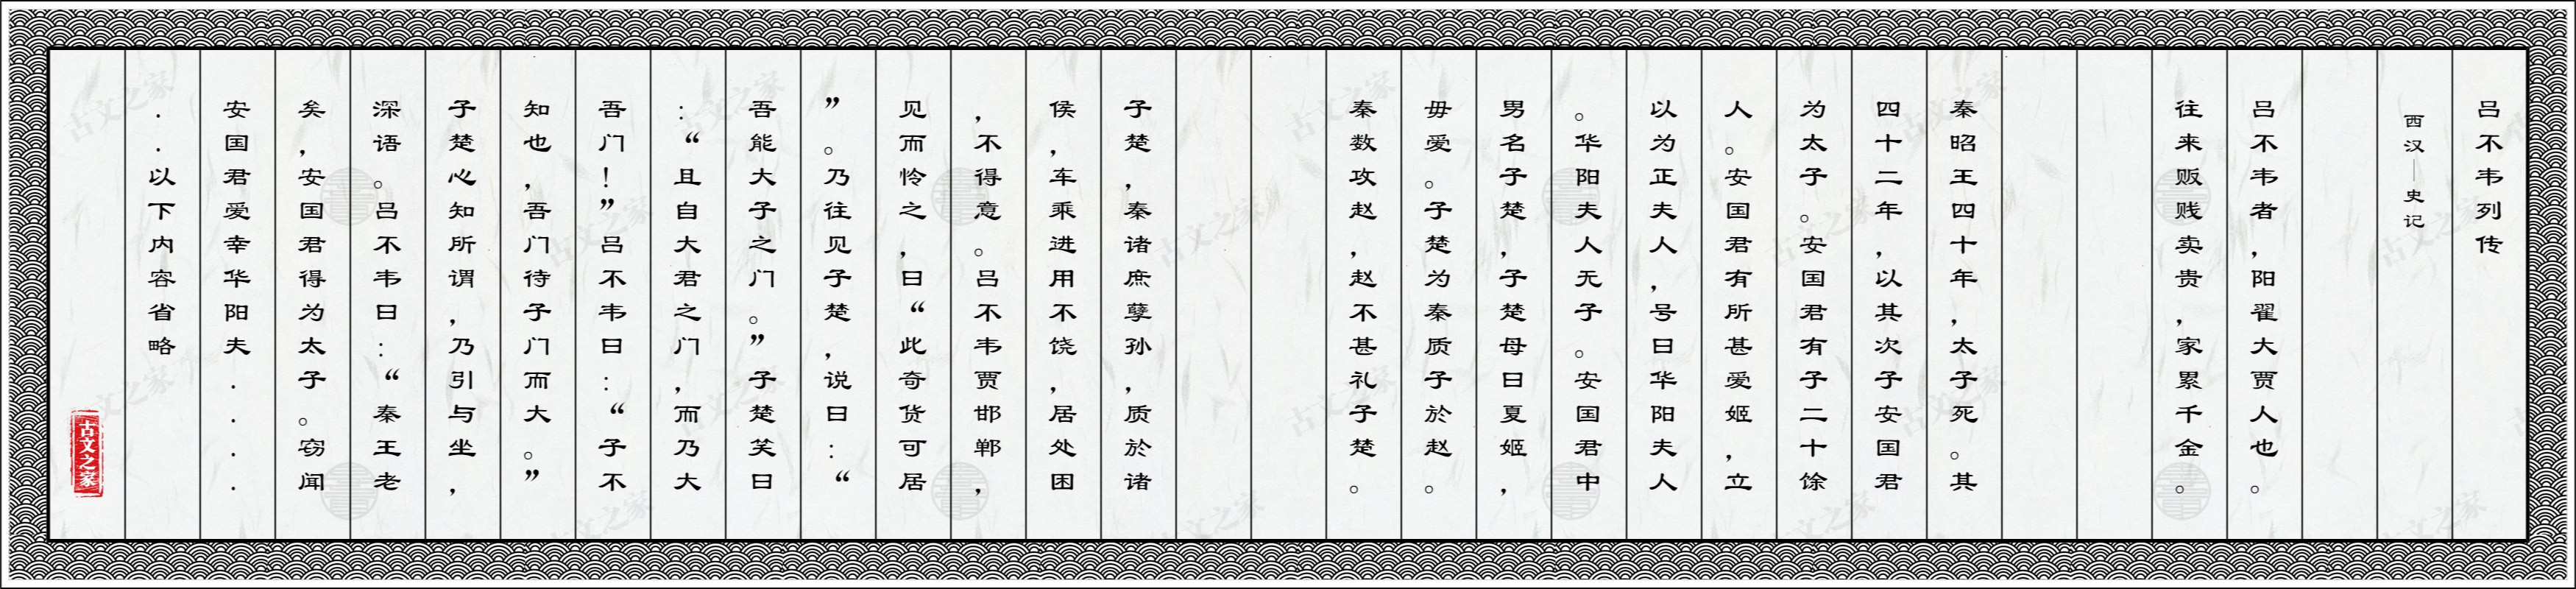 吕不韦列传
西汉—史记
吕不韦者，阳翟大贾人也。
往来贩贱卖贵，家累千金。
秦昭王四十年，太子死。其
四十二年，以其次子安国君
为太子。安国君有子二十馀
人。安国君有所甚爱姬，立
以为正夫人，号曰华阳夫人
。华阳夫人无子。安国君中
男名子楚，子楚母曰夏姬，
毋爱。子楚为秦质子於赵。
秦数攻赵，赵不甚礼子楚。
子楚，秦诸庶孽孙，质於诸
侯，车乘进用不饶，居处困
，不得意。吕不韦贾邯郸，
见而怜之，曰“此奇货可居
”。乃往见子楚，说曰：“
吾能大子之门。”子楚笑曰
：“且自大君之门，而乃大
吾门！”吕不韦曰：“子不
知也，吾门待子门而大。”
子楚心知所谓，乃引与坐，
深语。吕不韦曰：“秦王老
矣，安国君得为太子。窃闻
安国君爱幸华阳夫....
..以下内容省略
古文之家